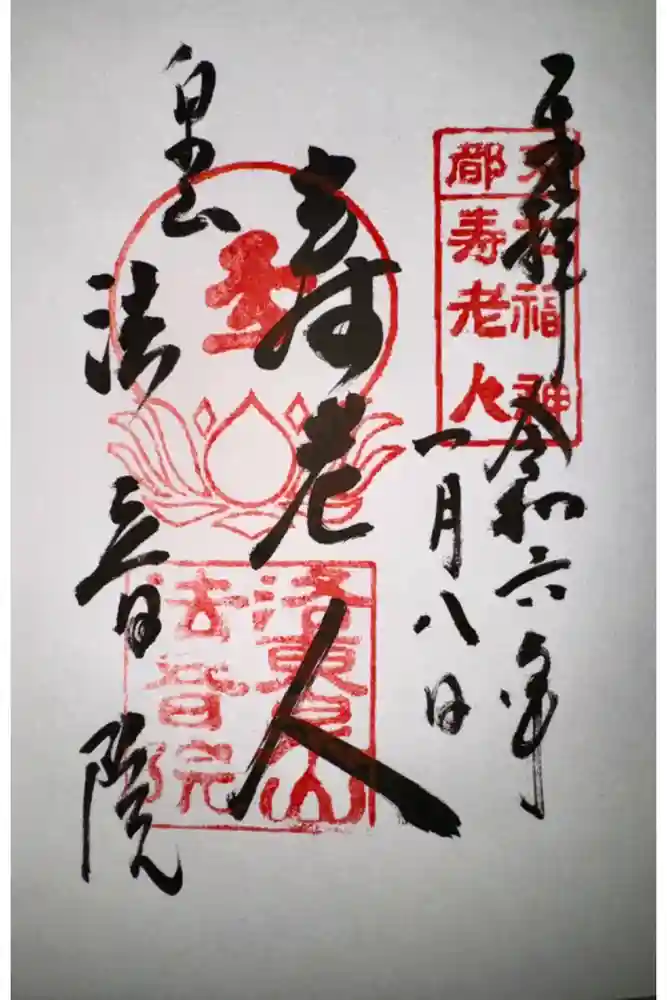 奉拝 令和六年
一月八日
都
福神
寿老人
寿老人
泉山 法音院
洛東泉山
法音院